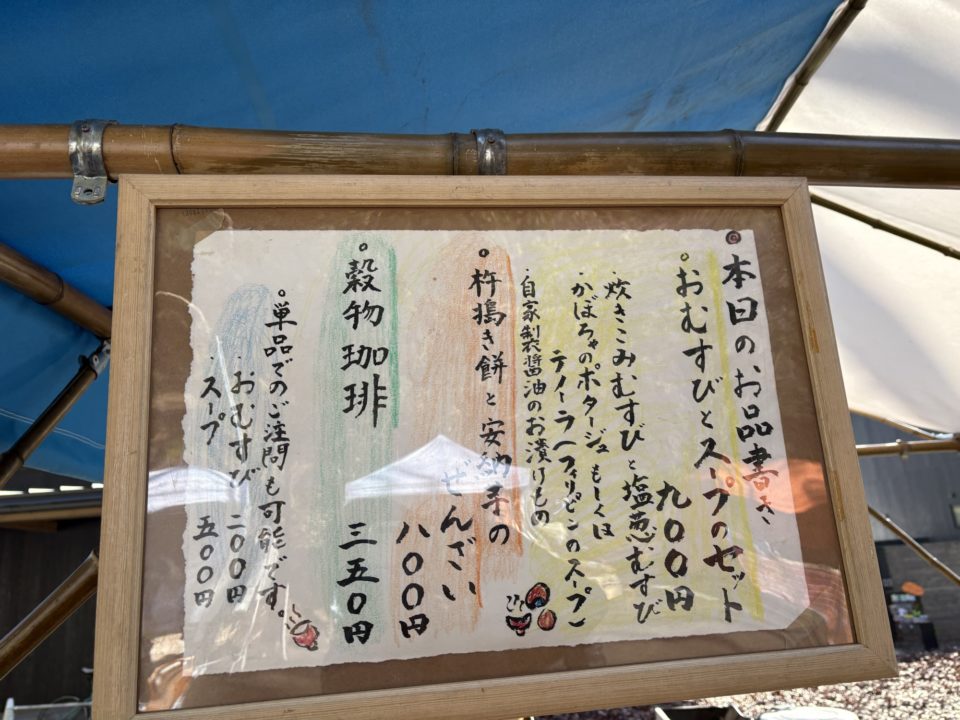 本日のお品書き
。おむすびとスープのセット
九〇〇円
・炊きこみむすびと塩葱むすび
・かぼちゃのポタージュもしくは
ティノーラ(フィリピンのスープ)
・自家製醤油のお漬けもの
。杵搗き餅と安納芋の
ぜんざい
八〇〇円
。穀物珈琲
三五〇円
。単品でのご注問も可能です。
・おむすび 二〇〇円
・スープ 五〇〇円